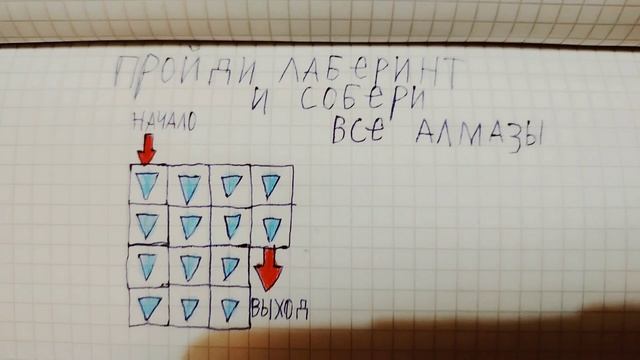 ПРОЙДИ ЛАБЕРИНТ
И СОБЕРИ
ВСЕ АЛМАЗЫ
НАЧАЛО
ВЫХОД